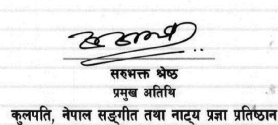 सरुभक्त श्रेष्ठ
प्रमुख अतिथि
कुलपति, नेपाल सङ्गीत तथा नाट्य प्रज्ञा प्रतिष्ठान